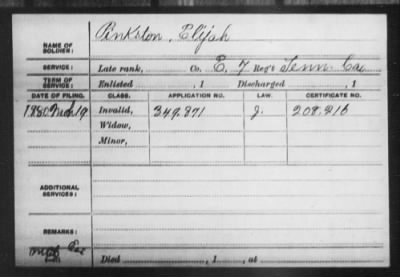 Pinkston, Elijah
NAME OF
SOLDIER:
SERVICE: Late rank, Co. E, 7 Reg't Tenn. Cav
TERM OF
SERVICE: Enlisted , 1 Discharged , 1
DATE OF FILING. CLASS. APPLICATION NO. LAW. CERTIFICATE NO.
1880 Mch 19 Invalid, 349.871 J. 208.216
Widow,
Minor,
ADDITIONAL
SERVICES:
REMARKS:
Died , 1 , at